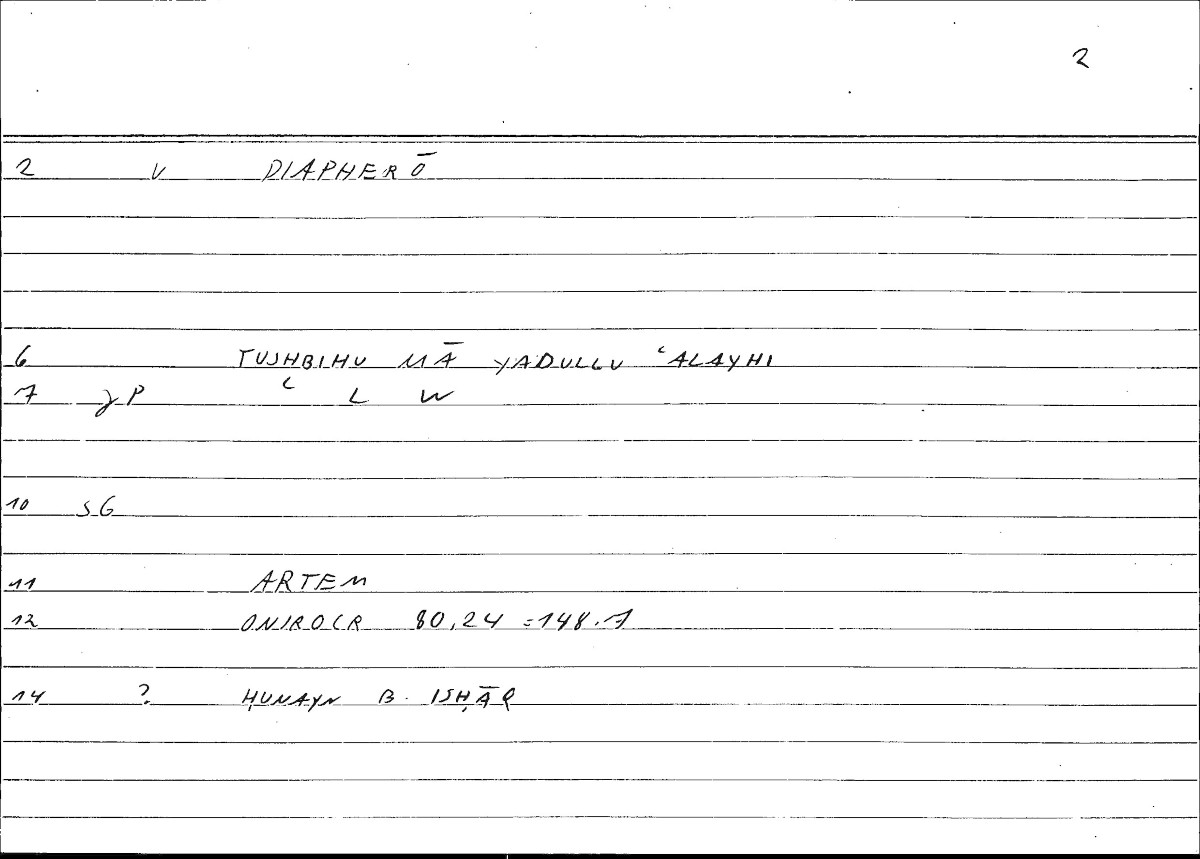 2
2 V DIAPHERŌ
6 TUSHBIHU MĀ YADULLU ʿALAYHI
7 ʿ L W
10 SG
11 ARTEM
12 ONIROCR 80,24 =148.7
14 ? ḤUNAYN B. ISḤĀQ